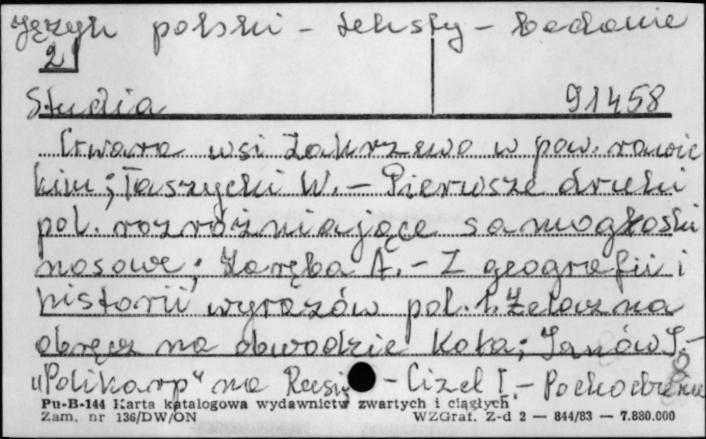 Język polski - teksty - badanie
2
Studia 91458
Gwara wsi Zakrzewo w pow. rawic
kim; Taszycki W. - Pierwsze druki
pol. rozróżniające samogłoski
nosowe; Zaręba A. - Z geografii i
historii wyrazów pol. 1. Żelazna
obręcz na obwodzie koła; Janów J. -
"Polikarp" na Rusi - Cizel I. - Pochodzenie
8
Pu-B-144 Karta katalogowa wydawnictw zwartych i ciągłych
Zam. nr 136/DW/ON WZGraf. Z-d 2 — 844/83 — 7.880.000